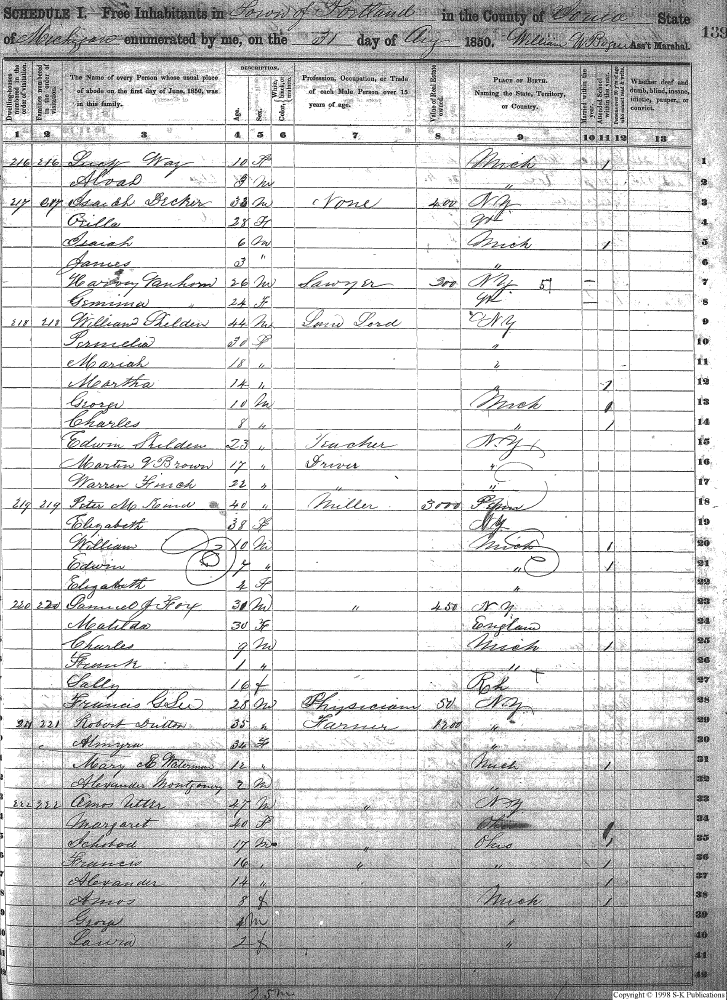 SCHEDULE I. Free Inhabitants in Town of Portland in the County of Ionia State
of Michigan enumerated by me, on the 31 day of Aug 1850. William W. Ass't Marshal. 139
Dwelling-houses numbered in the order of visitation.
Families numbered in the order of visitation.
The Name of every Person whose usual place of abode on the first day of June, 1850, was in this family.
DESCRIPTION.
Age.
Sex.
Color, White, black, or mulatto.
Profession, Occupation, or Trade of each Male Person over 15 years of age.
Value of Real Estate owned.
PLACE OF BIRTH. Naming the State, Territory, or Country.
Married within the year.
Attended School within the year.
Whether deaf and dumb, blind, insane, idiotic, pauper, or convict.
1 2 3 4 5 6 7 8 9 10 11 12 13
216 216 Lucy Way 10 F Mich 1 1
Alvah 3 M " 2
217 217 Isaiah Decker 33 M None 400 N.Y. 3
Orilla 28 F Vt 4
Isaiah 6 M Mich 1 5
James 3 " " 6
Harvey Vanhorn 26 M Sawyer 300 N.Y. 5 7
Gemima 24 F Vt 8
218 218 William Shelden 44 M Land Lord N.Y 9
Permelia 30 F " 10
Mariah 18 " " 11
Martha 14 " " 1 12
George 10 M Mich 1 13
Charles 8 " " 1 14
Edwin Shelden 23 " Teacher N.Y 15
Martin V Brown 17 " Driver " 16
Warren 22 " " 17
219 219 Peter M 40 " Miller 3000 Penn 18
Elizabeth 38 F N.Y 19
William 10 M Mich 1 20
Edwin 7 " " 1 21
Elizabeth 2 F " 22
220 220 Samuel J Fox 30 M " 450 N.Y. 23
Matilda 30 F England 24
Charles 9 M Mich 1 25
Frank 1 " " 26
Sally 16 f 27
Francis G Lee 28 M Physician 50 N.Y. 28
221 221 Robert Dutton 35 " Farmer 1200 " 29
Almyra 34 F " 30
Mary E Waterman 12 " Mich 1 31
Alexander Montgomery 2 M " 32
222 222 Amos Utter 47 M " N.Y 33
Margaret 40 F Ohio 34
17 M " Ohio 1 35
Francis 16 " " " 1 36
Alexander 14 " " 1 37
Amos 8 f Mich 1 38
George 4 M " 39
Laura 2 f " 40
41
42
25 m
Copyright © 1998 S-K Publications